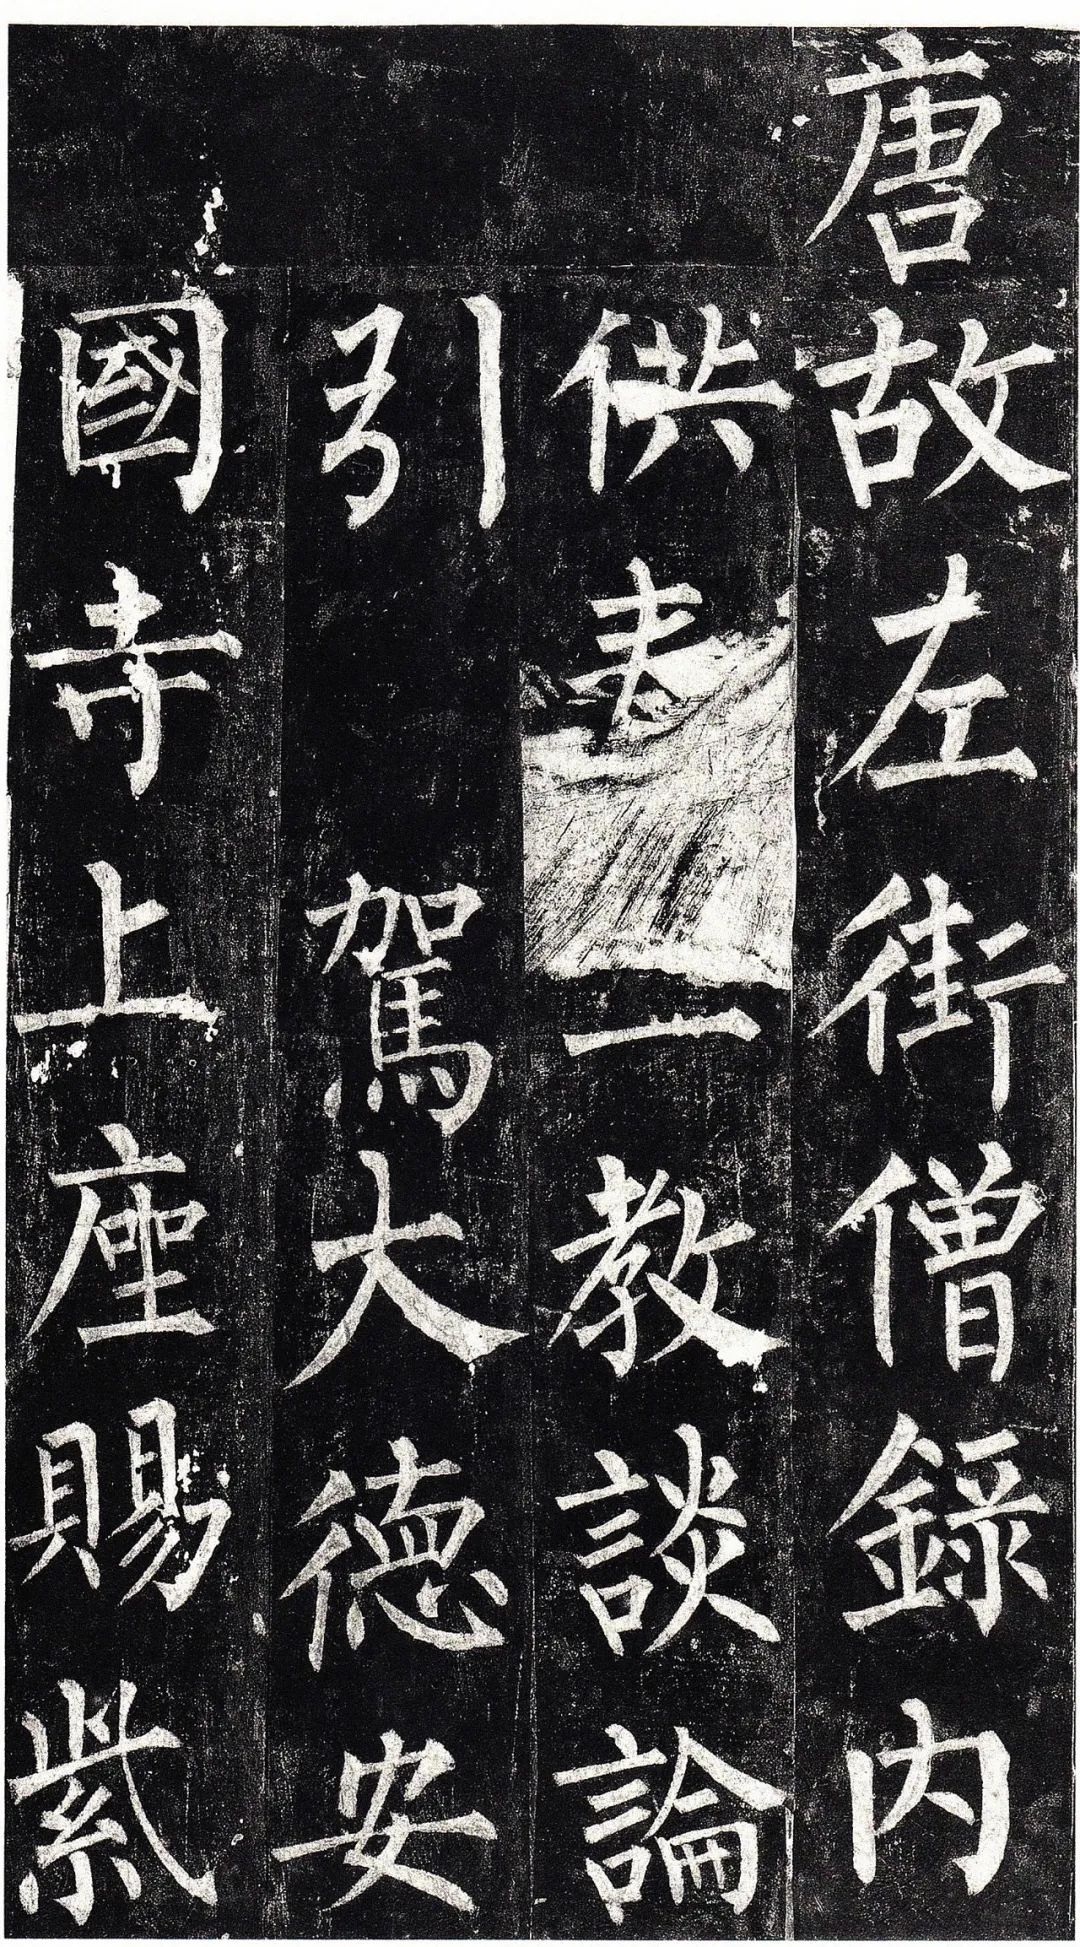 唐故左街僧錄内
供奉教談論
引駕大德安
國寺上座賜紫